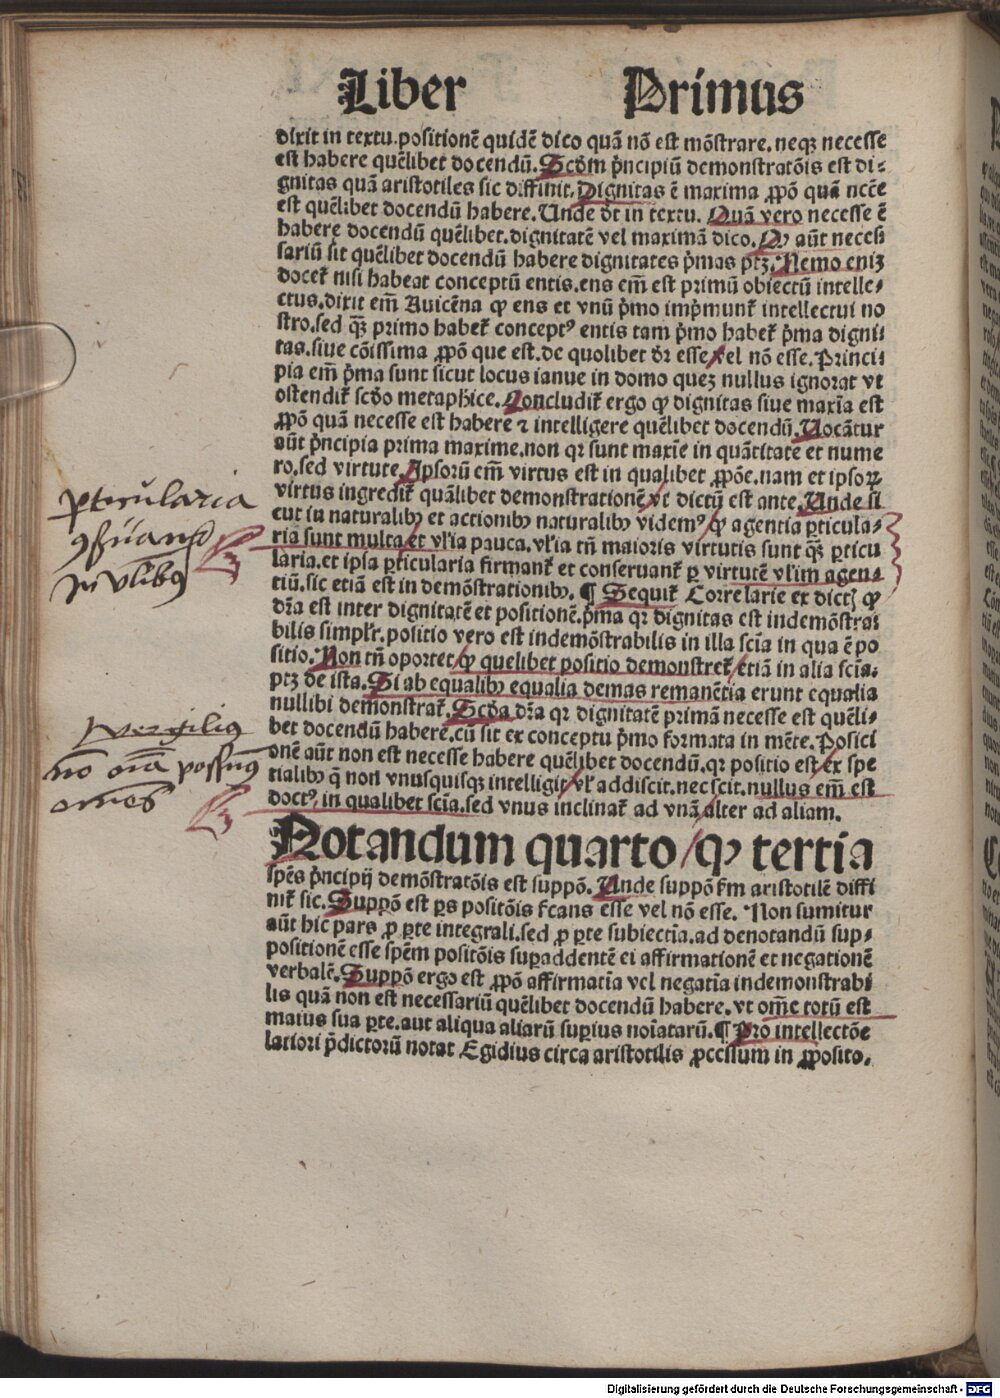 Liber Primus
dixit in textu. positionē quidē dico quā nō est mōstrare. neqꝫ necesse
est habere quēlibet docendū. Scd̄m p̄ncipiū demonstratōis est di⸗
gnitas quā aristotiles sic diffinit. Dignitas ē maxima ꝓpō quā nccē
est quēlibet docendū habere. Unde dr̄ in textu. Quā vero necesse ē
habere docendū quēlibet. dignitatē vel maximā dico. Qꝙ aūt necess
sariū sit quēlibet docendū habere dignitates p̄mas ptꝫ. Nemo eniꝫ
docet᷑ nisi habeat conceptū entis. ens em̄ est primū obiectū intelle⸗
ctus. dixit em̄ Auicēna ꝙ ens et vnū p̄mo imp̄munt᷑ intellectui no
stro. sed qꝫ̄ primo habet᷑ conceptꝰ entis tam p̄mo habet᷑ p̄ma digni
tas. siue cōissima ꝓpō que est. de quolibet dr̄ esse vel nō esse. Princi⸗
pia em̄ p̄ma sunt sicut locus ianue in domo queꝫ nullus ignorat vt
ostendit᷑ scd̄o metaph̄ice. Concludit᷑ ergo ꝙ dignitas siue maxīa est
ꝓpō quā necesse est habere ⁊ intelligere quēlibet docendū. Uocātur
aūt p̄ncipia prima maxime. non qr sunt maxīe in quātitate et nume
ro. sed virtute. Ipsorū em̄ virtus est in qualibet ꝓpōe. nam et ipsoꝝ
virtus ingredit᷑ quālibet demonstrationē / vt dictū est ante. Unde si
cut in naturalibꝫ et actionibꝫ naturalibꝫ videmꝰ / ꝙ agentia ꝑticula⸗
ria sunt multa / et vl̄ia pauca. vl̄ia tn̄ maioris virtutis sunt qꝫ̄ ꝑticu
laria. et ipsa ꝑticularia firmant᷑ et conseruant᷑ ꝑ virtutē vl̄im agen⸗
tiū. sic etiā est in demōstrationibꝫ. ¶ Sequit᷑ Correlarie ex dictꝭ ꝙ
dr̄a est inter dignitatē et positionē. p̄ma qr dignitas est indemōstra⸗
bilis simpl̄r. positio vero est indemōstrabilis in illa scīa in qua ē po
sitio. Non tn̄ oportet / ꝙ quelibet positio demonstret᷑ / etiā in alia scīa.
ptꝫ de ista. Si ab equalibꝫ equalia demas remanētia erunt equalia
nullibi demonstrat᷑. Scd̄a dr̄a qr dignitatē primā necesse est quēli⸗
bet docendū habere. cū sit ex conceptu p̄mo formata in mēte. Posici
onē aūt non est necesse habere quēlibet docendū. qr positio est / ex spe
tialibꝫ q̄ non vnusquisqꝫ intelligit / vl᷑ addiscit. nec scit. nullus em̄ est
doctꝰ, in qualibet scīa. sed vnus inclinat᷑ ad vnā / alter ad aliam.
Notandum quarto / ꝙ tertia
sp̄es p̄ncipij demōstratōis est suppō. Unde suppō fm̄ aristotilē diffi
nit᷑ sic. Suppō est ꝑs positōis fcans esse vel nō esse. Non sumitur
aūt hic pars ꝓ ꝑte integrali. sed ꝓ ꝑte subiectīa. ad denotandū sup⸗
positionē esse sp̄em positōis suꝑaddentē ei affirmationē et negationē
verbalē. Suppō ergo est ꝓpō affirmatīa vel negatīa indemonstrabi
lis quā non est necessariū quēlibet docendū habere. vt om̄e totū est
maius sua ꝑte. aut aliqua aliarū suꝑius noīatarū. ¶ Pro intellectōe
latiori p̄dictorū notat Egidius circa aristotilis ꝓcessum in ꝓposito.
ꝑticularia
ꝯſuant᷑
in vl̄ibus
Vergilius
nō oīa possumꝰ
omnes
Digitalisierung gefördert durch die Deutsche Forschungsgemeinschaft - DFG